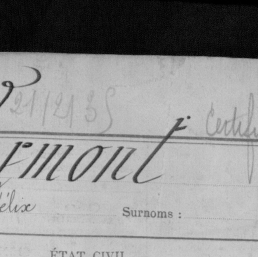 21/21 35
rmont
élix Surnoms :
ÉTAT CIVIL